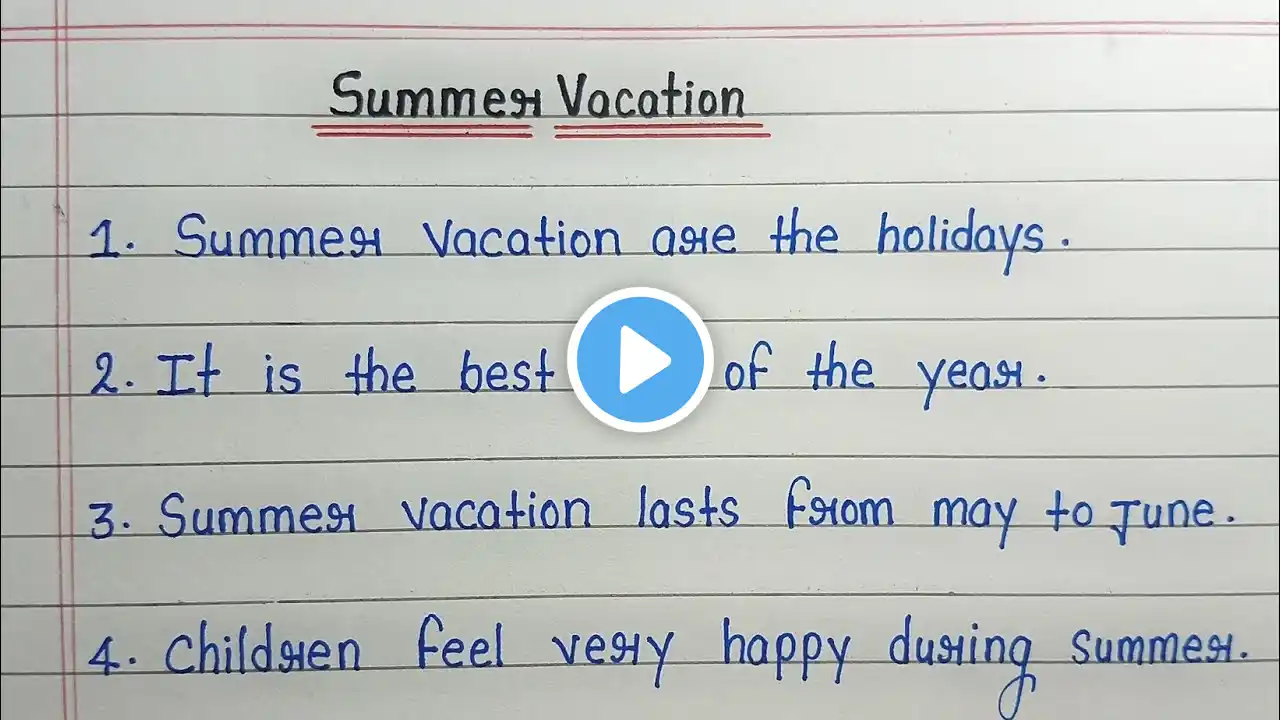 Summer Vacation
1. Summer vacation are the holidays.
2. It is the best of the year.
3. Summer vacation lasts from may to June.
4. Children feel very happy during summer.